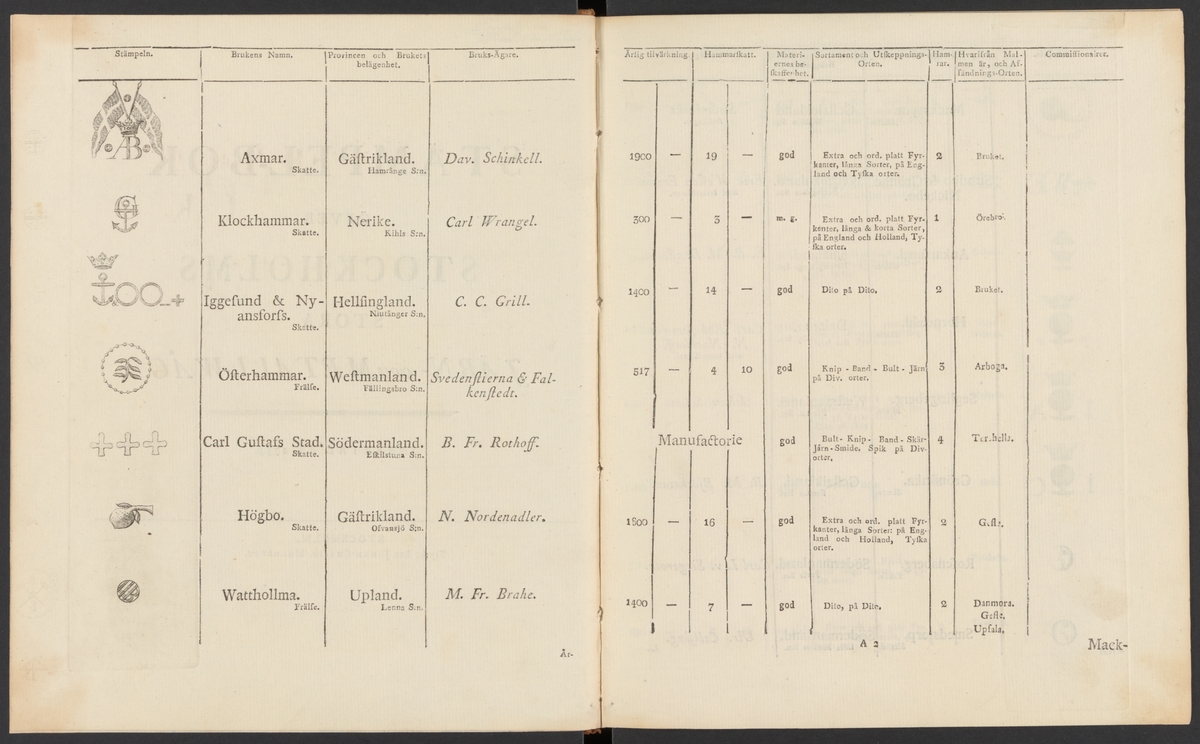 Stämpeln.
Brukens Namn.
Provincen och Brukets
belägenhet.
Bruks-Ägare.
AB
Axmar.
Skatte.
Gäſtrikland.
Hamrånge S:n.
Dav. Schinkell.
Klockhammar.
Skatte.
Nerike.
Kihls S:n.
Carl Wrangel.
Iggeſund & Ny-
ansforſs.
Skatte.
Hellſingland.
Niutånger S:n.
C. C. Grill.
Öſterhammar.
Frälſe.
Weſtmanland.
Fällingsbro S:n.
Svedenſtierna & Fal-
kenſtedt.
Carl Guſtafs Stad.
Skatte.
Södermanland.
Eſkilstuna S:n.
B. Fr. Rothoff.
Högbo.
Skatte.
Gäſtrikland.
Ofvansjö S:n.
N. Nordenadler.
Wattholl­ma.
Frälſe.
Upland.
Lenna S:n.
M. Fr. Brahe.
År-
Årlig tillvärkning.
Hammarſkatt.
Materi-
ernes be-
ſkaffenhet.
Sortament och Utſkeppnings-
Orten.
Ham-
rar.
Hvarifrån Mal-
men är, och Af-
ſändnings-Orten.
Commiſſionairer.
1900 — 19 — god
Extra och ord. platt Fyr-
kanter, långa Sorter, på Eng-
land och Tyſka orter.
2
Bruket.
300 — 3 — m. g.
Extra och ord. platt Fyr-
kanter, långa & korta Sorter,
på England och Holland, Ty-
ſka orter.
1
Örebro.
1400 — 14 — god
Dito på Dito.
2
Bruket.
517 — 4 10 god
Knip - Band - Bult - Järn
på Div. orter.
3
Arboga.
Manufactorie god
Bult- Knip- Band- Skär-
Järn-Smide. Spik på Div-
orter.
4
Torshella.
1800 — 16 — god
Extra och ord. platt Fyr-
kanter, långa Sorter: på Eng-
land och Holland, Tyſka
orter.
2
Gefle.
1400 — 7 — god
Dito, på Dito.
2
Danmora.
Gefle.
Upſala.
A 2
Mack-